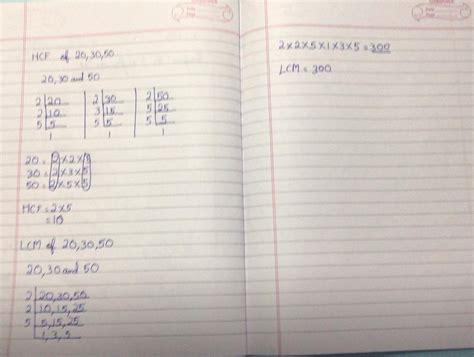 HCF of 20,30,50
20,30 and 50
2 20 2 30 2 50
2 10 3 15 5 25
5 5 5 5 5 5
1 1 1
20 = 2×2×5
30 = 2×3×5
50 = 2×5×5
HCF = 2×5
= 10
LCM of 20,30,50
20,30 and 50
2 20,30,50
2 10,15,25
5 5,15,25
1,3,5
2×2×5×1×3×5=300
LCM = 300